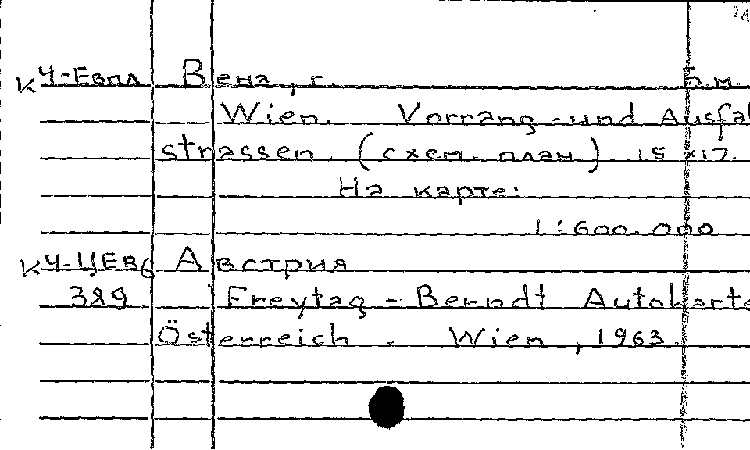 К4-Евпл Вена, г. Б.м.
Wien. Vorrang-und Ausfal
strassen. (схем. план) 15x17.
На карте:
1:600.000
К4-ЦЕв6 Австрия
389 Freytag-Berndt Autokarte
Österreich. Wien, 1963.